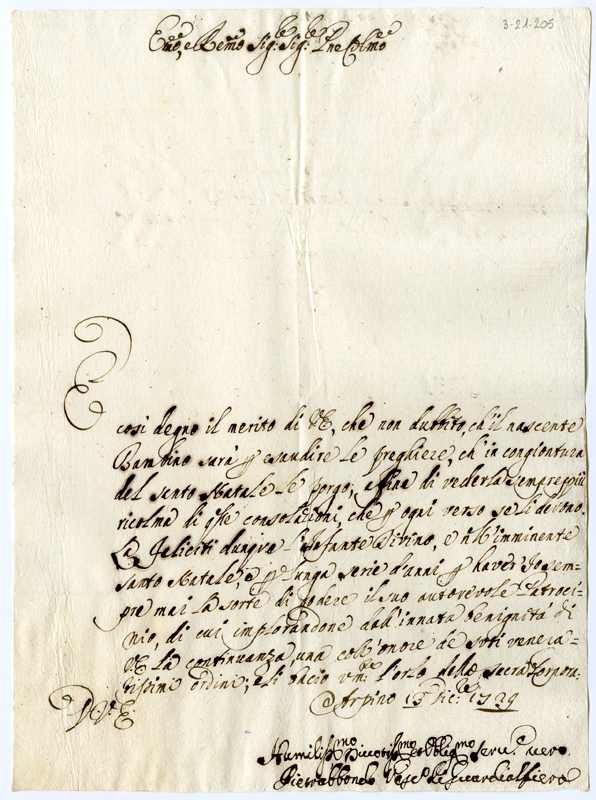 3-21-205
Emo, e Remo Sig:re Sig:re Pne Colmo
E
così degno il merito di VE, che non dubbito, ch'il nascente
Bambino sarà p esaudire le preghiere, ch'in congiontura
del santo Natale le porgo; afine di vederla semprepiù
ricolma di qste consolazioni, che p ogni verso se li devono.
La feliciti dunque l'Infante Divino, e nell'imminente
santo Natale, e p lunga serie d'anni p haver' Io sem-
pre mai la sorte di godere il suo autorevole Patroci-
nio, di cui implorandone dall'innata benignità di
VE la continuanza, una coll'onore de suoi venera=
tissimi ordini; Li bacio um:te l'orlo della sacra Porpora.
D V. E.
Arpino 15 Dic:e 1729
Humiliss:mo Divotiss:mo et Obblig:mo Seru.e vero
Pietrabbondo Vesc.o di Guardialfiera